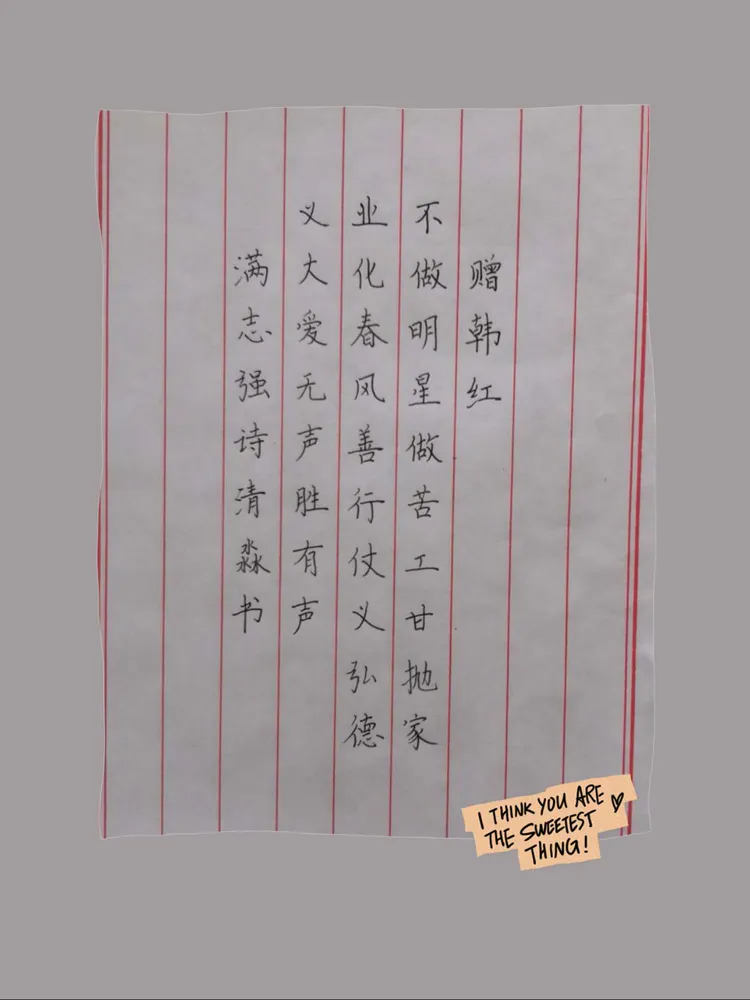 赠韩红
不做明星做苦工甘抛家
业化春风善行仗义弘德
义大爱无声胜有声
满志强诗清淼书
I THINK YOU ARE
THE SWEETEST
THING!